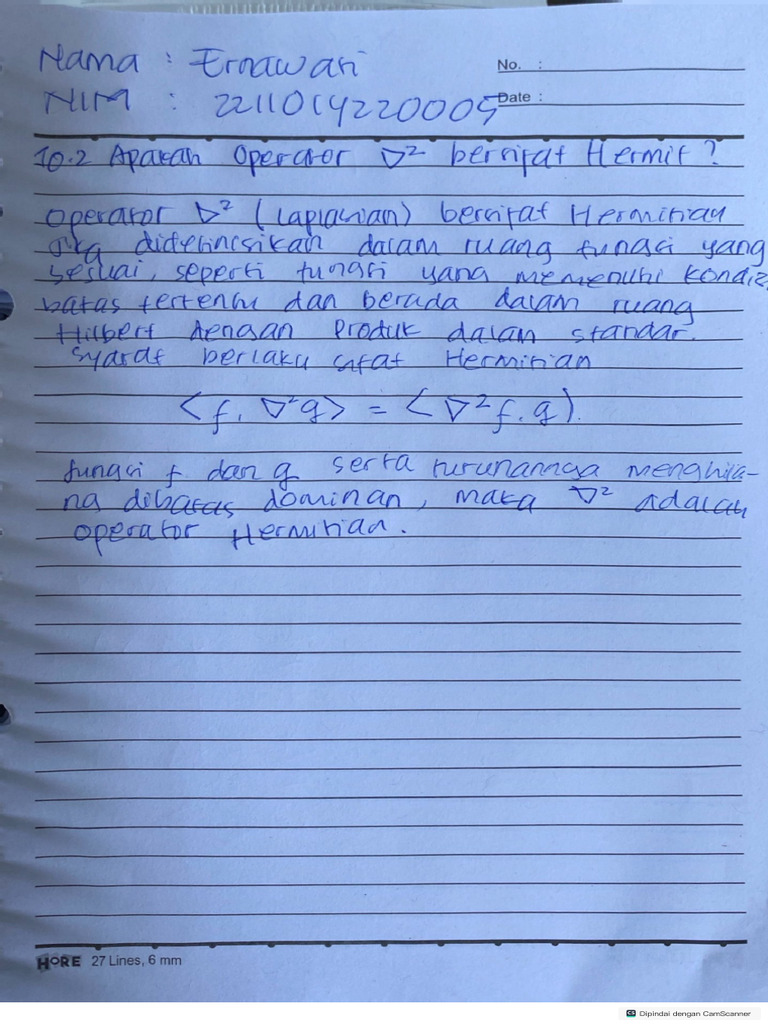 Nama : Ernawati
No. :
NIM : 2211014220005
Date :
10.2 Apakah Operator ∇² bersifat Hermit?
Operator ∇² (Laplasian) bersifat Hermitian
jika didefinisikan dalam ruang fungsi yang
sesuai, seperti fungsi yang memenuhi kondisi
batas tertentu dan berada dalam ruang
Hilbert dengan Produk dalam standar.
Syarat berlaku sifat Hermitian
<f, ∇²g> = <∇²f, g).
fungsi f dan g serta turunannya menghila-
ng dibatas dominan, maka ∇² adalah
operator Hermitian.
HORE 27 Lines, 6 mm
CS Dipindai dengan CamScanner